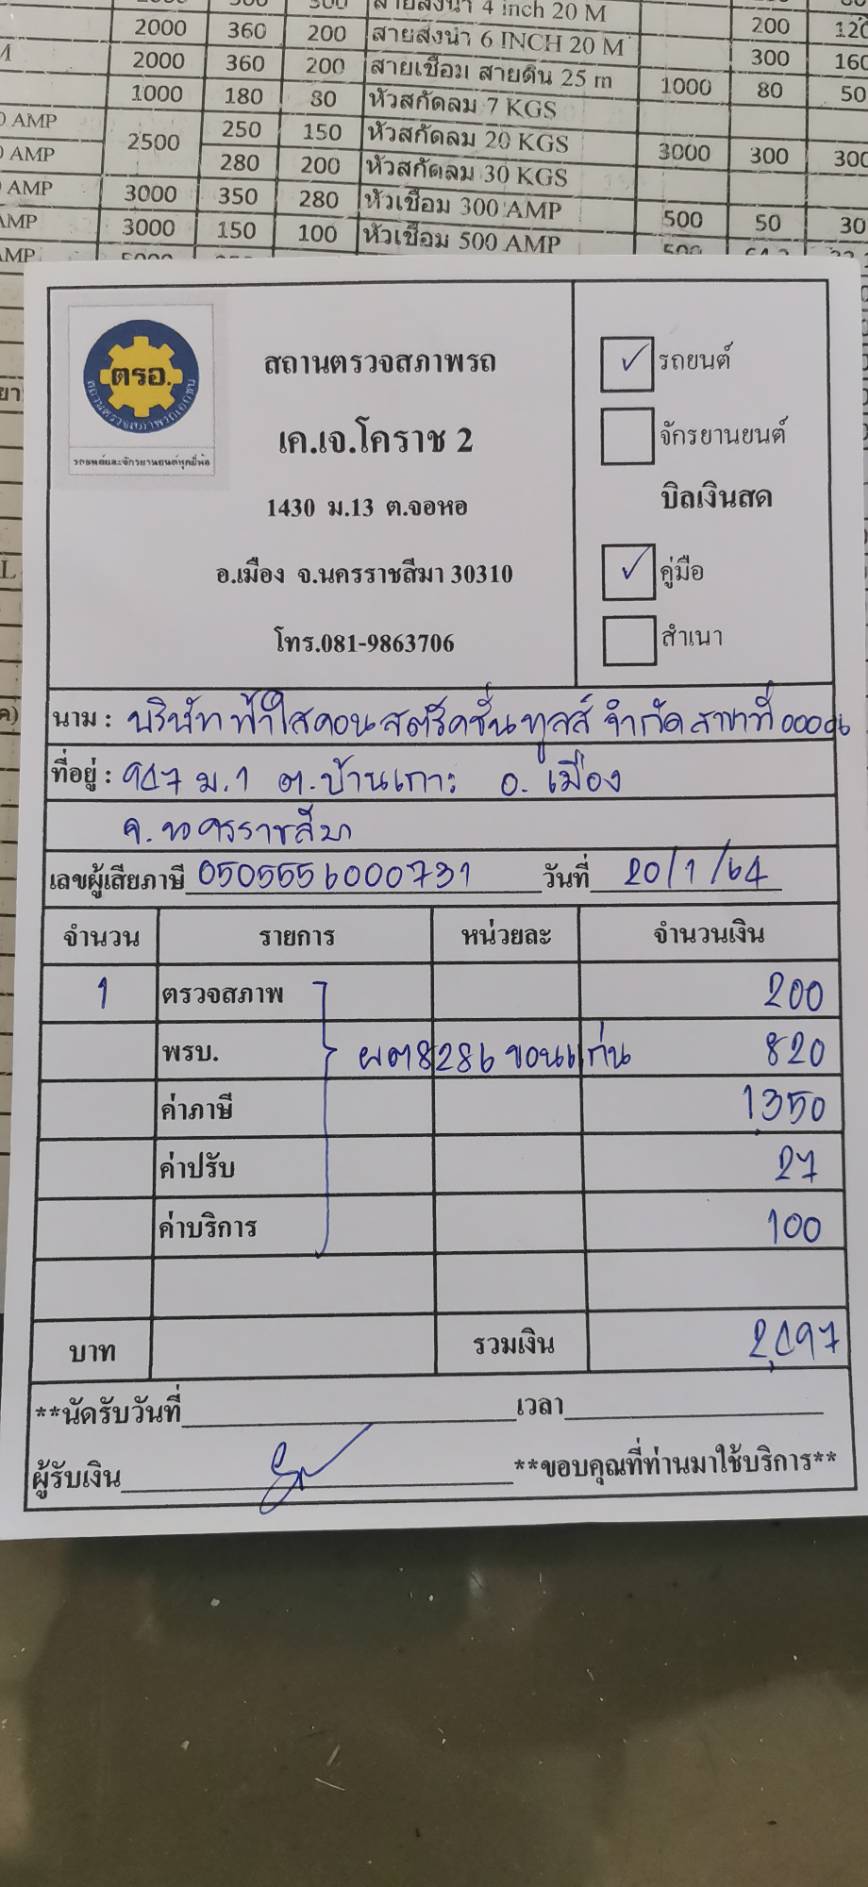 300 สายส่งน้ำ 4 inch 20 M
2000 360 200 สายส่งน้ำ 6 INCH 20 M 200
2000 360 200 สายเชื่อม สายดิน 25 m 300 160
1000 180 80 หัวสกัดลม 7 KGS 1000 80 50
AMP 2500 250 150 หัวสกัดลม 20 KGS
AMP 280 200 หัวสกัดลม 30 KGS 3000 300 300
AMP 3000 350 280 หัวเชื่อม 300 AMP
AMP 3000 150 100 หัวเชื่อม 500 AMP 500 50 30
AMP
ตรอ.
สถานตรวจสภาพรถเอกชน
รถยนต์และจักรยานยนต์ทุกยี่ห้อ
สถานตรวจสภาพรถ
เค.เจ.โคราช 2
1430 ม.13 ต.จอหอ
อ.เมือง จ.นครราชสีมา 30310
โทร.081-9863706
✓ รถยนต์
จักรยานยนต์
บิลเงินสด
✓ คู่มือ
สำเนา
นาม : บริษัท ฟ้าใสคอนสตรัคชั่นทูลส์ จำกัด สาขาที่ 00006
ที่อยู่ : 947 ม.1 ต.บ้านเกาะ อ.เมือง
จ.นครราชสีมา
เลขผู้เสียภาษี 0505556000731 วันที่ 20/1/64
จำนวน รายการ หน่วยละ จำนวนเงิน
1 ตรวจสภาพ 200
พรบ. ผต8286 ขอนแก่น 820
ค่าภาษี 1350
ค่าปรับ 27
ค่าบริการ 100
บาท รวมเงิน 2,497
**นัดรับวันที่ เวลา
ผู้รับเงิน **ขอบคุณที่ท่านมาใช้บริการ**